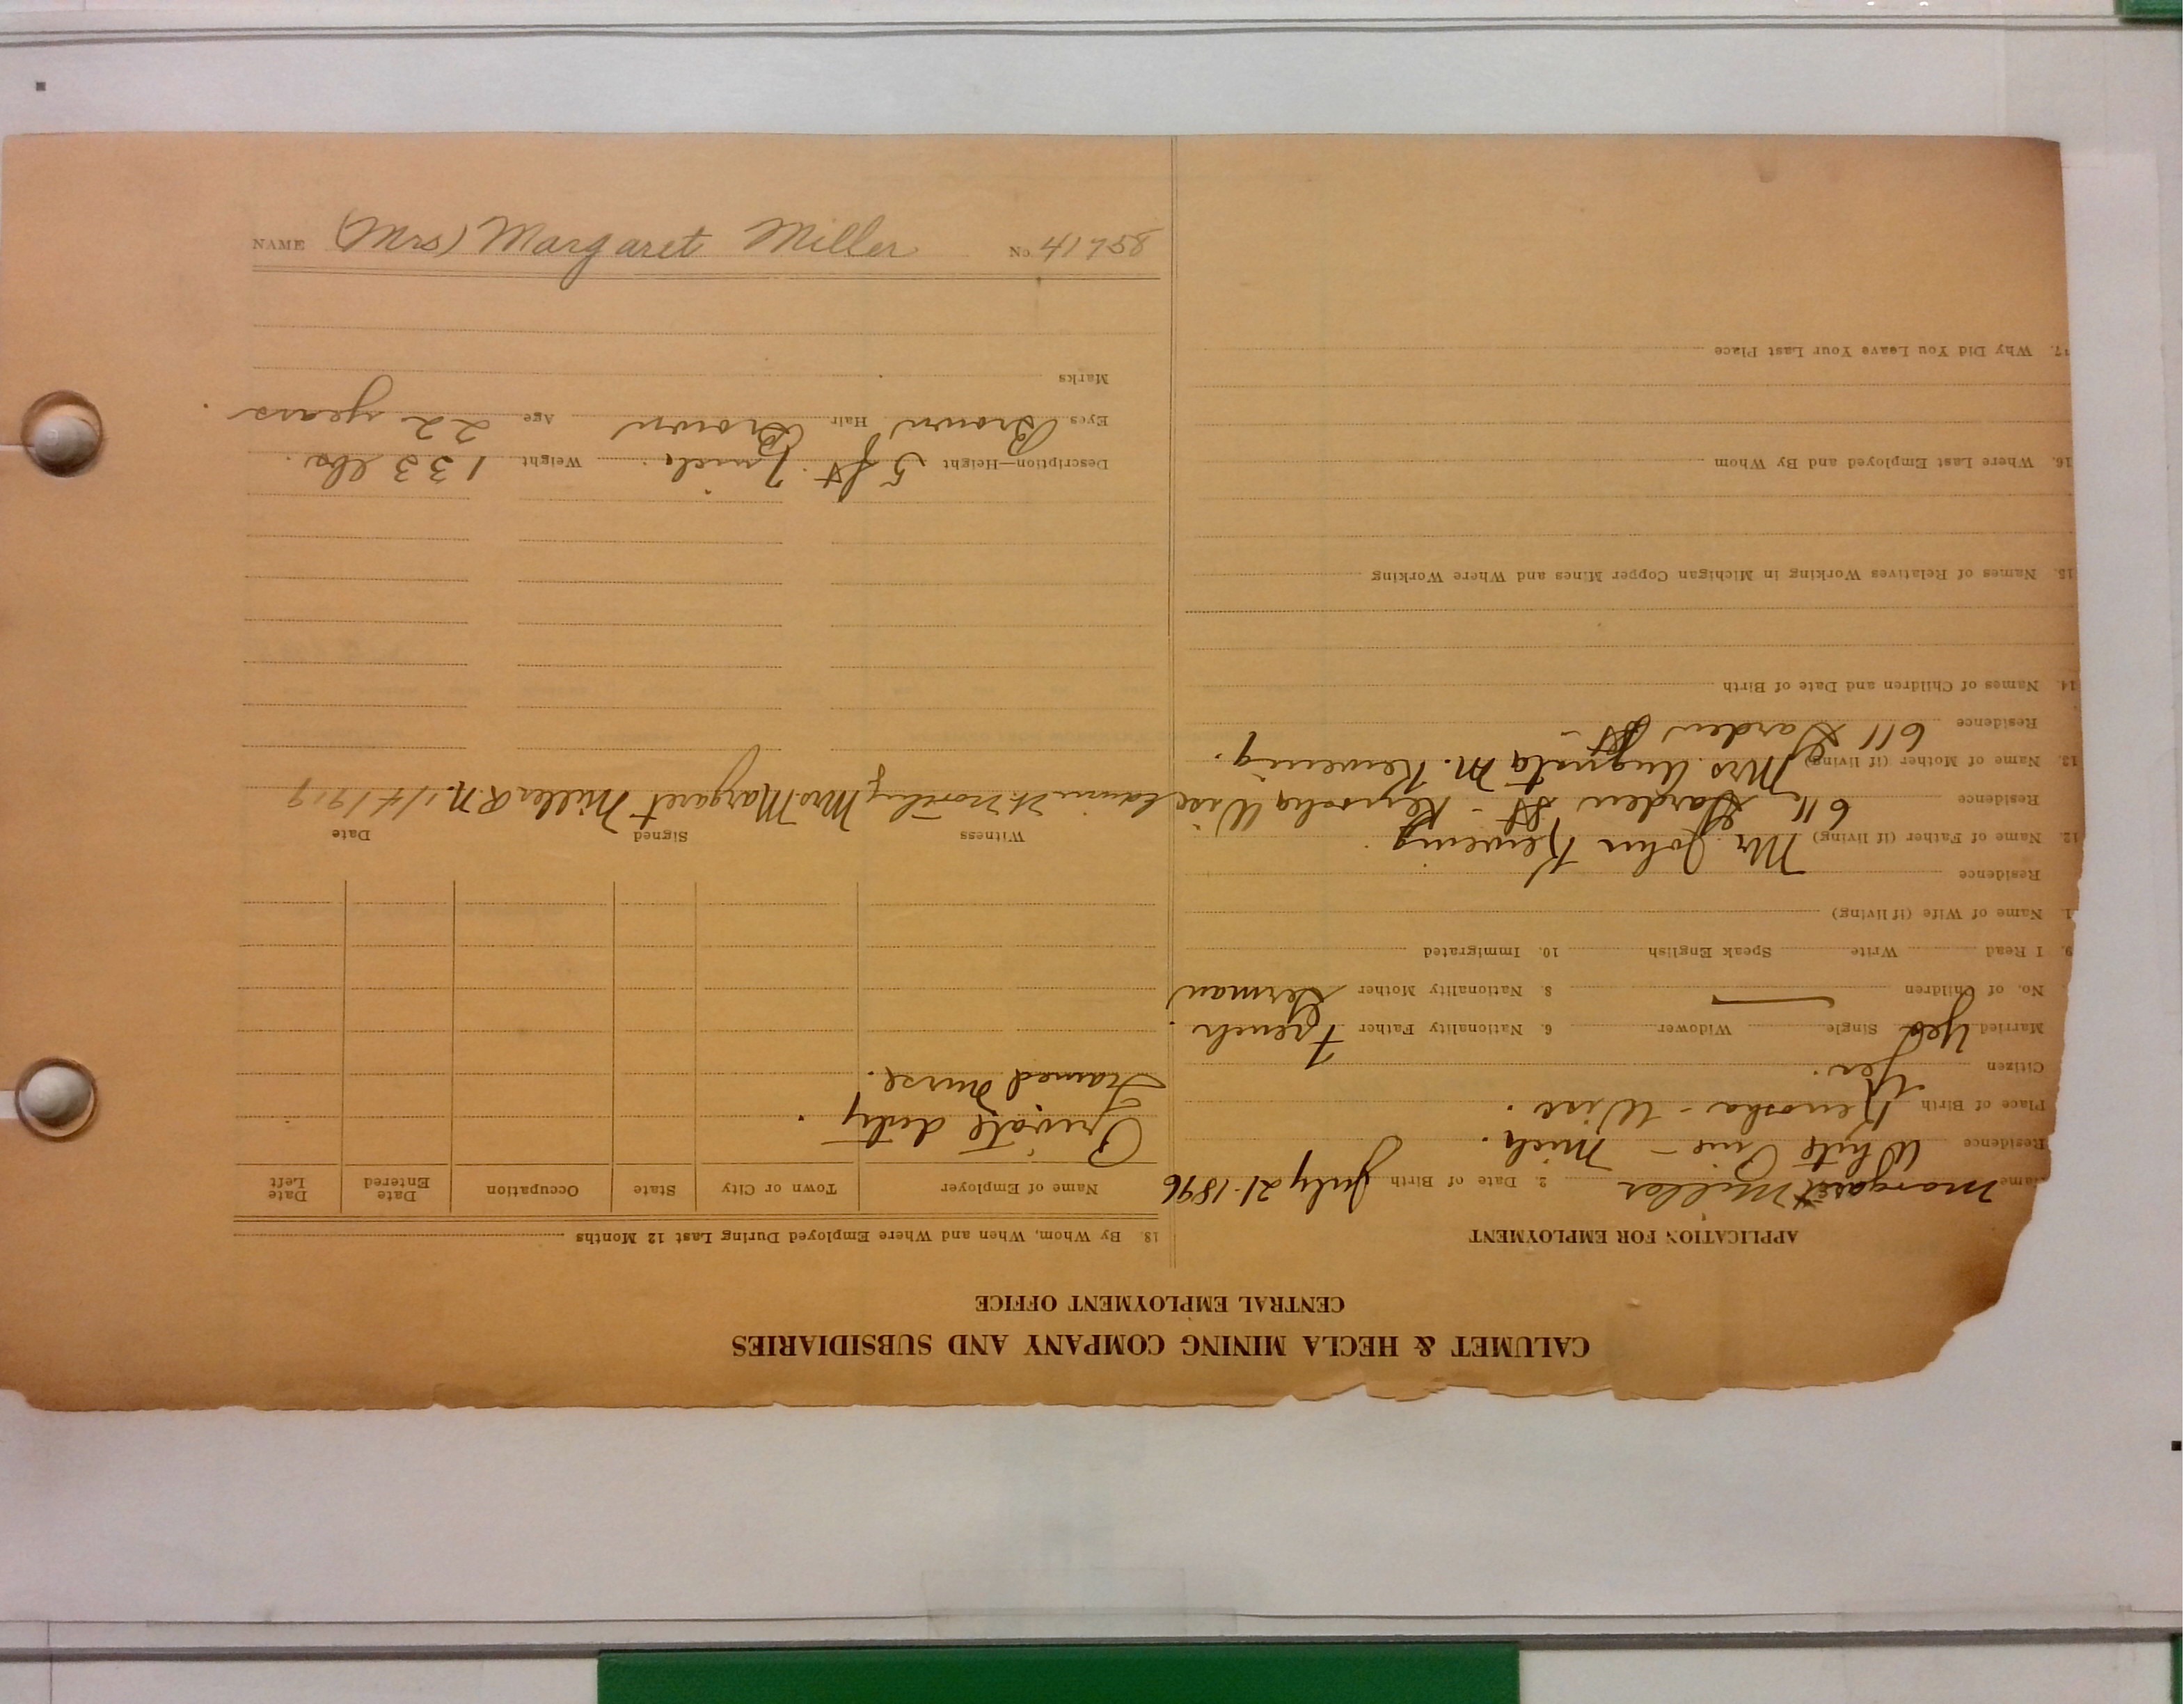 CALUMET & HECLA MINING COMPANY AND SUBSIDIARIES
CENTRAL EMPLOYMENT OFFICE
APPLICATION FOR EMPLOYMENT
Name Margaret Miller 2. Date of Birth July 21-1896
Residence White Pine - Mich.
Place of Birth Kenosha - Wisc.
Citizen Yes.
Married Yes Single Widower 6. Nationality Father French.
No. of Children 8. Nationality Mother German
9. I Read Write Speak English 10. Immigrated
1. Name of Wife (if living)
Residence
12. Name of Father (if living) Mr. John
Residence 611 Garden St - Kenosha Wisc
13. Name of Mother (if living) Mrs. Augusta M.
Residence 611 Garden St -
14. Names of Children and Date of Birth
15. Names of Relatives Working in Michigan Copper Mines and Where Working
16. Where Last Employed and By Whom
17. Why Did You Leave Your Last Place
18. By Whom, When and Where Employed During Last 12 Months
Name of Employer Town or City State Occupation Date Entered Date Left
Private duty.
Trained nurse.
Witness Signed Date
Mrs. Margaret Miller R.N. 1/4/1919
Description—Height 5 ft. 7 inch. Weight 133 lbs.
Eyes Brown Hair Brown Age 22 years
Marks
NAME (Mrs) Margaret Miller No 41758